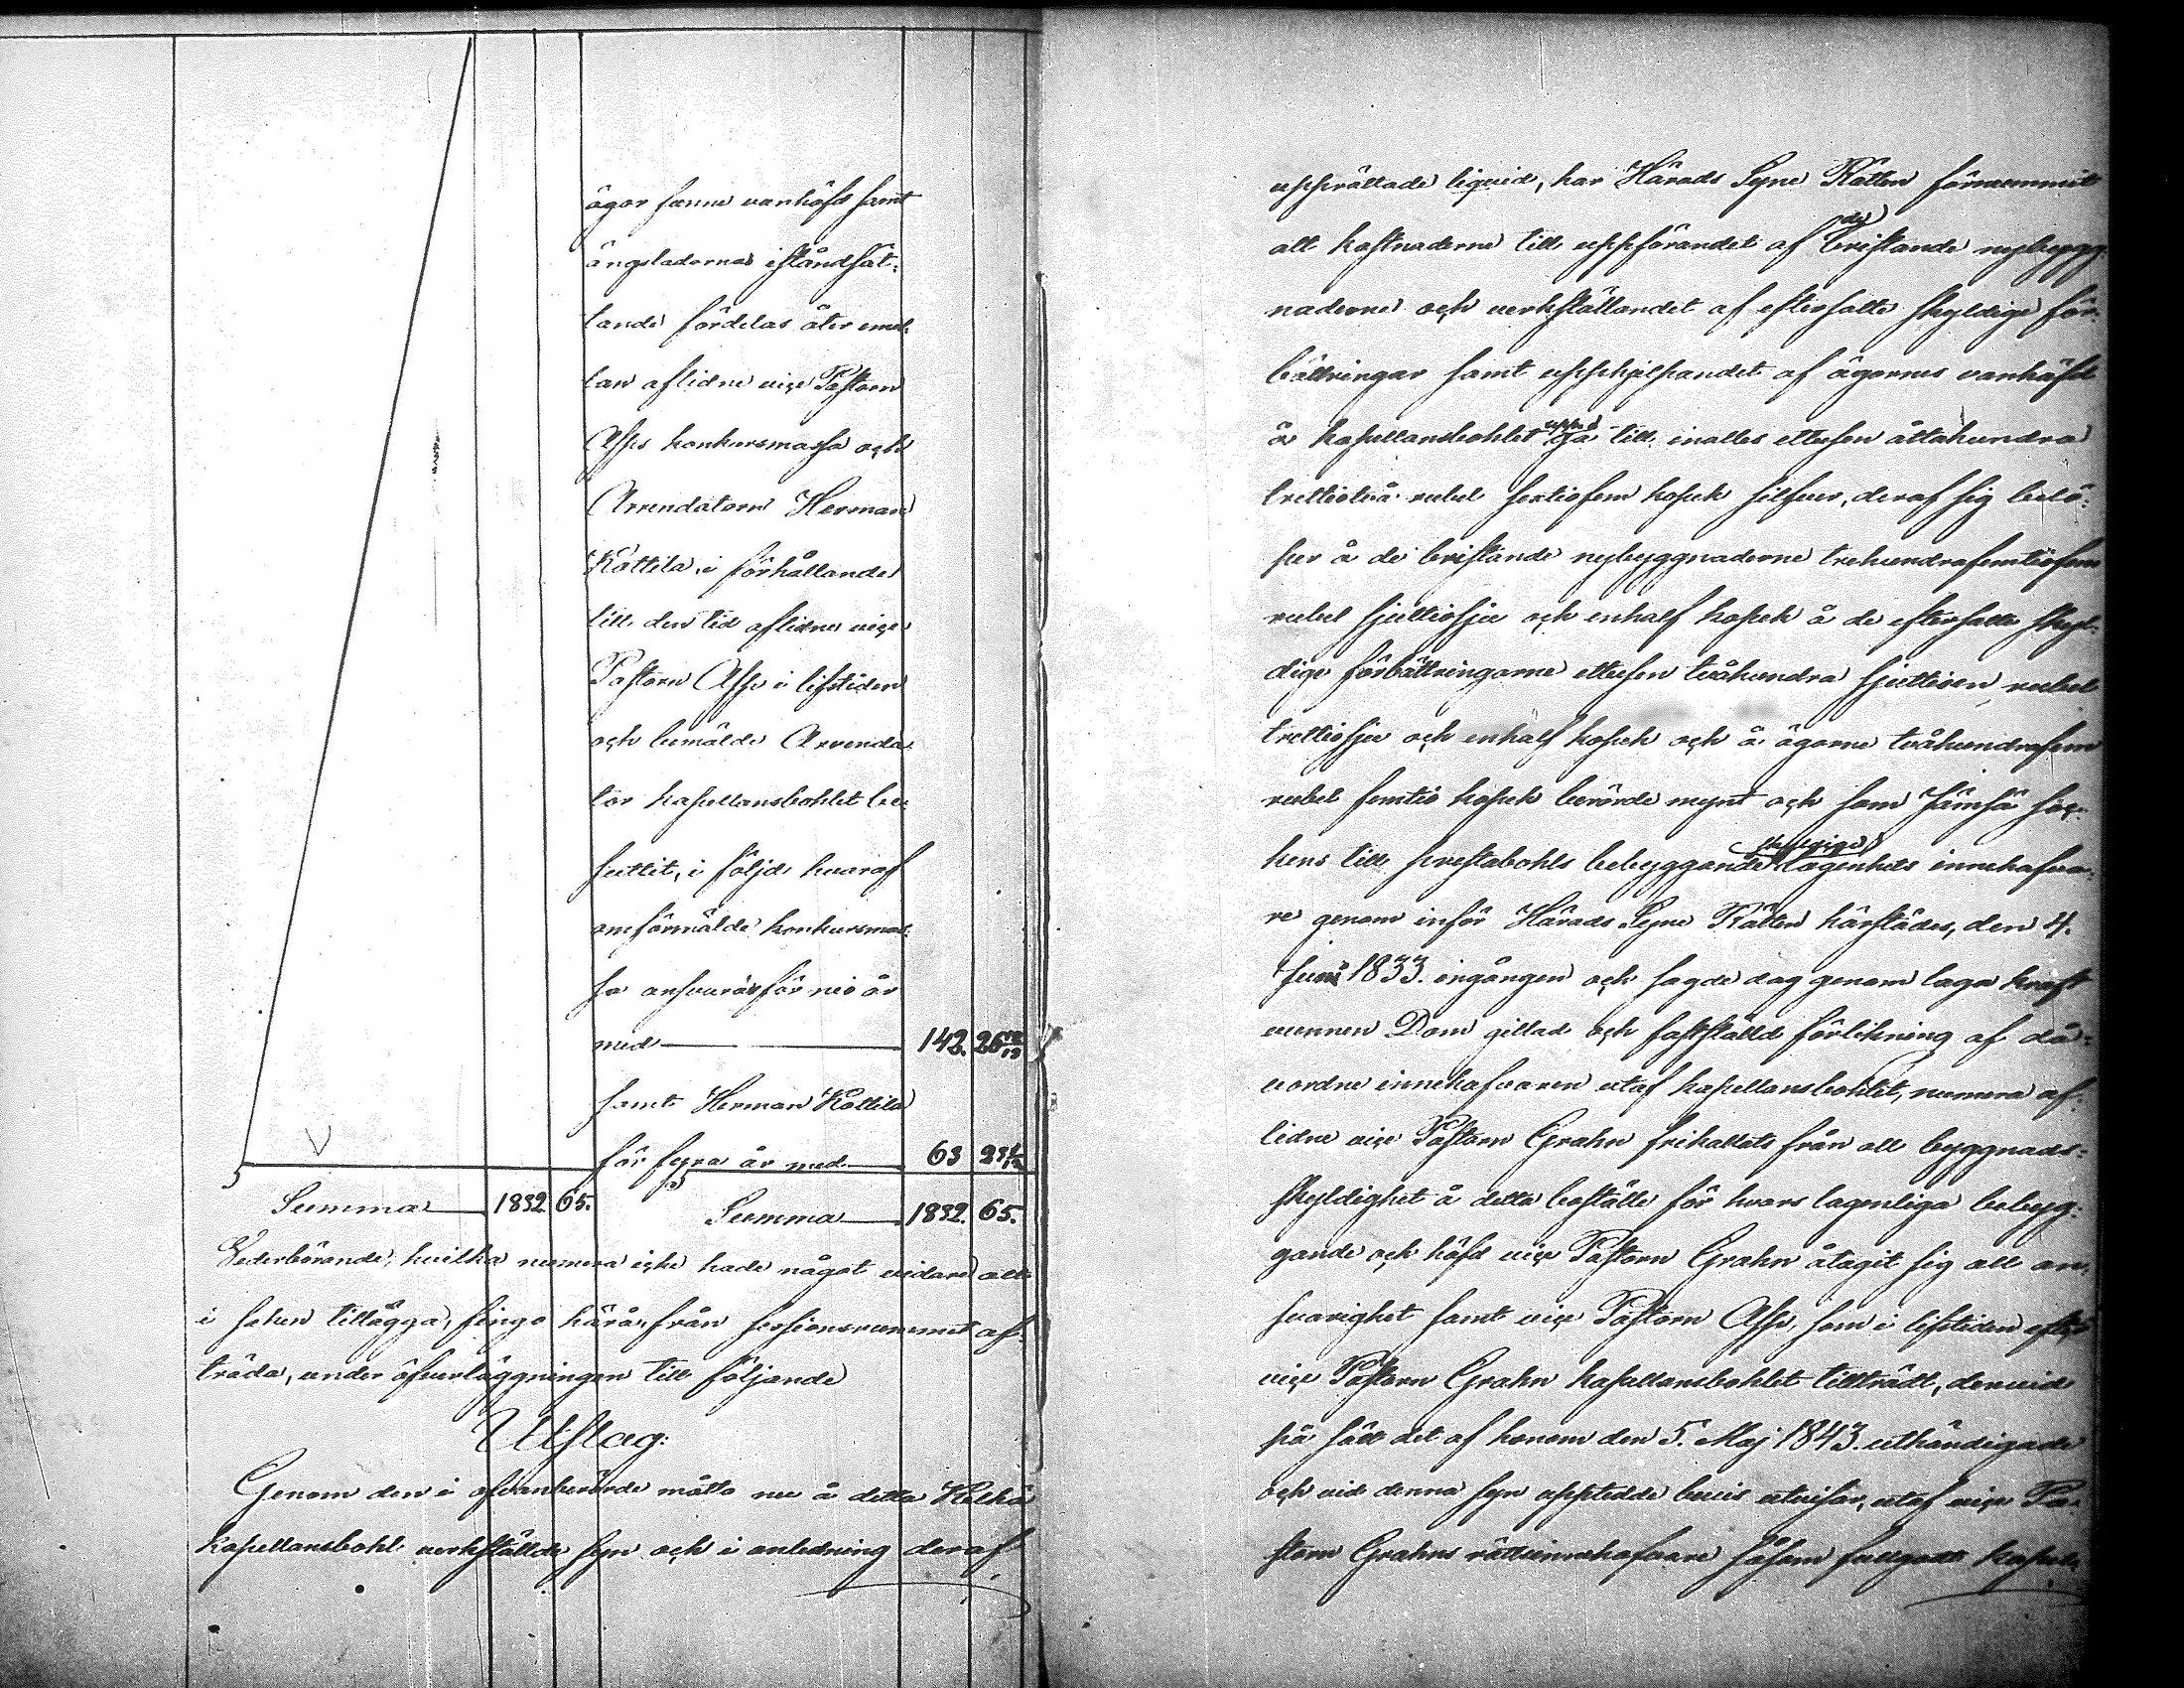 ägor samt vanhäfd samt
ängsladornas iståndsät-
tande fördelas åter emel-
lan aflidne vice Pastorn
Asps konkursmassa och
Arrendatorn Herman
Kottila, i förhållande
till den tid aflidne vice
Pastorn Asp i lifstiden
och bemälde Arrenda-
tor kapellansbohlet be-
suttit, i följd hvaraf
omförmälde konkursmas-
sa ansvarar för nio år
med 142. 26 12/13
samt Herman Kottila
för fyra år med 63 23 1/13
Summa 1832 65. Summa 1832. 65.
Vederbörande, hvilka numera icke hade något vidare att
i saken tillägga, fingo härå, från sessionsrummet af-
träda, under öfverläggningen till följande
Utslag:
Genom den i ofvanberörde måtto nu å detta
kapellansbohl verkställde syn och i anledning deraf
upprättade liquid, har Härads Syne Rätten förnummit
att kostnaderne till uppförandet af de bristande nybygg-
naderne och verkställandet af eftersatte skyldige för-
bättringar samt upphjelpandet af ägornes vanhäfd
å kapellansbohlet uppgå till inalles ettusen åttahundra
trettiotvå rubel sextiofem kopek silfver, deraf sig belö-
per å de bristande nybyggnaderne trehundrafemtiofem
rubel sjuttiosju och enhalf kopek å de eftersatte skyl-
dige förbättringarne ettusen tvåhundra sjuttioen rubel
trettiosju och enhalf kopek och å ägorne tvåhundrafem
rubel femtio kopek berörde mynt och som Jämsä soc-
kens till prestabohls bebyggande skyldige lägenhets innehafva-
re genom inför Härads Syne Rätten härstädes, den 4.
Juni 1833. ingången och sagde dag genom laga kraft
vunnen Dom gillad och fastställd förlikning af då-
vordne innehafvaren utaf kapellansbohlet, numera af-
lidne vice Pastorn Grahn frikallats från all byggnads-
skyldighet å detta boställe för hvars lagenliga bebyg-
gande och häfd vice Pastorn Grahn åtagit sig all an-
svarighet samt vice Pastorn Asp, som i lifstiden efter
vice Pastorn Grahn kapellansbohlet tillträdt, dervid
på sätt det af honom den 5. Maj 1843. uthändigade
och vid denna syn uppteedde bevis utvisar, utaf vice Pa-
storn Grahns rättsinnehafvare såsom fullgodt